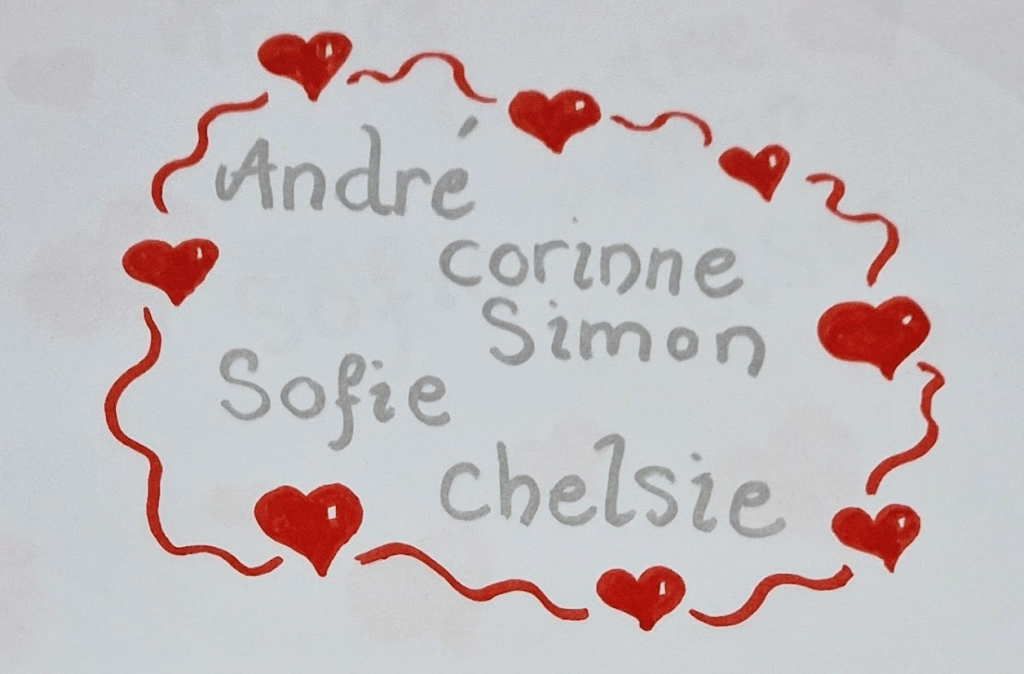 André
corinne
Simon
Sofie
chelsie